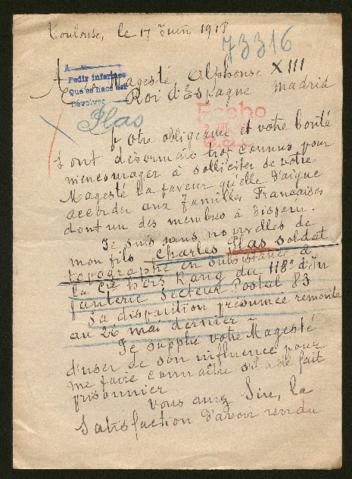 Toulouse, le 17 Juin 1918
73316
A
Pedir informes
Que se hace est
Devolver
A Sa Magesté, Alphonse XIII
Roi d'Espagne Madrid
Hecho
Plas
Votre obligeance et votre bonté
sont désormais trop connus pour
m'encourager à solliciter de votre
Magesté la faveur qu'elle daigne
accorder aux familles Françaises
dont un des membres a disparu.
Je suis sans nouvelles de
mon fils Charles Plas soldat
topographe en subsistance à
la Cie Hors Rang du 118e d'In
fanterie Secteur Postal 83
Sa disparition présumée remonte
au 26 mai dernier
Je supplie votre Magesté
d'user de son influence pour
me faire connaître s'il a été fait
prisonnier
Vous aurez Sire, la
satisfaction d'avoir rendu